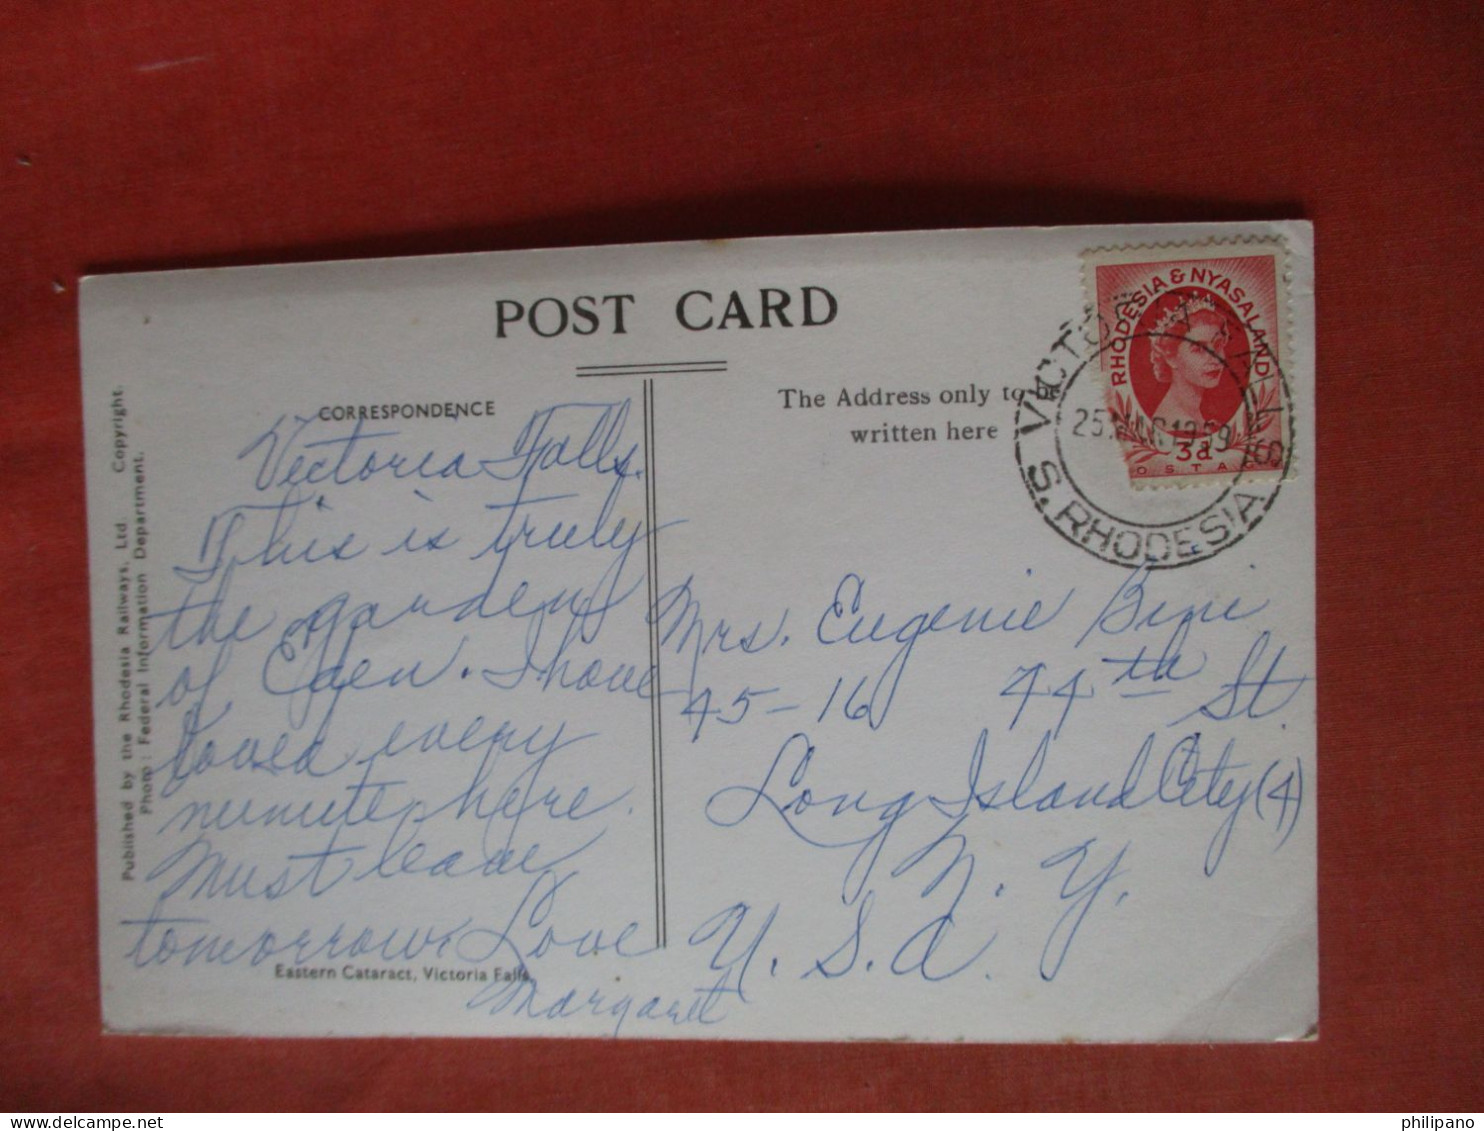 POST CARD
CORRESPONDENCE
The Address only to be
written here
RHODESIA & NYASALAND
3d
POSTAGE
VICTORIA FALLS
25 MAR 1959
S. RHODESIA
Victoria Falls.
This is truly
the garden
of Eden. I have
loved every
minute here.
Must leave
tomorrow. Love
Margaret
Mrs. Eugenie Bini
45-16 44th St.
Long Island City (4)
N. Y.
U. S. A.
Eastern Cataract, Victoria Falls.
Published by the Rhodesia Railways, Ltd. Copyright.
Photo: Federal Information Department.
philipano